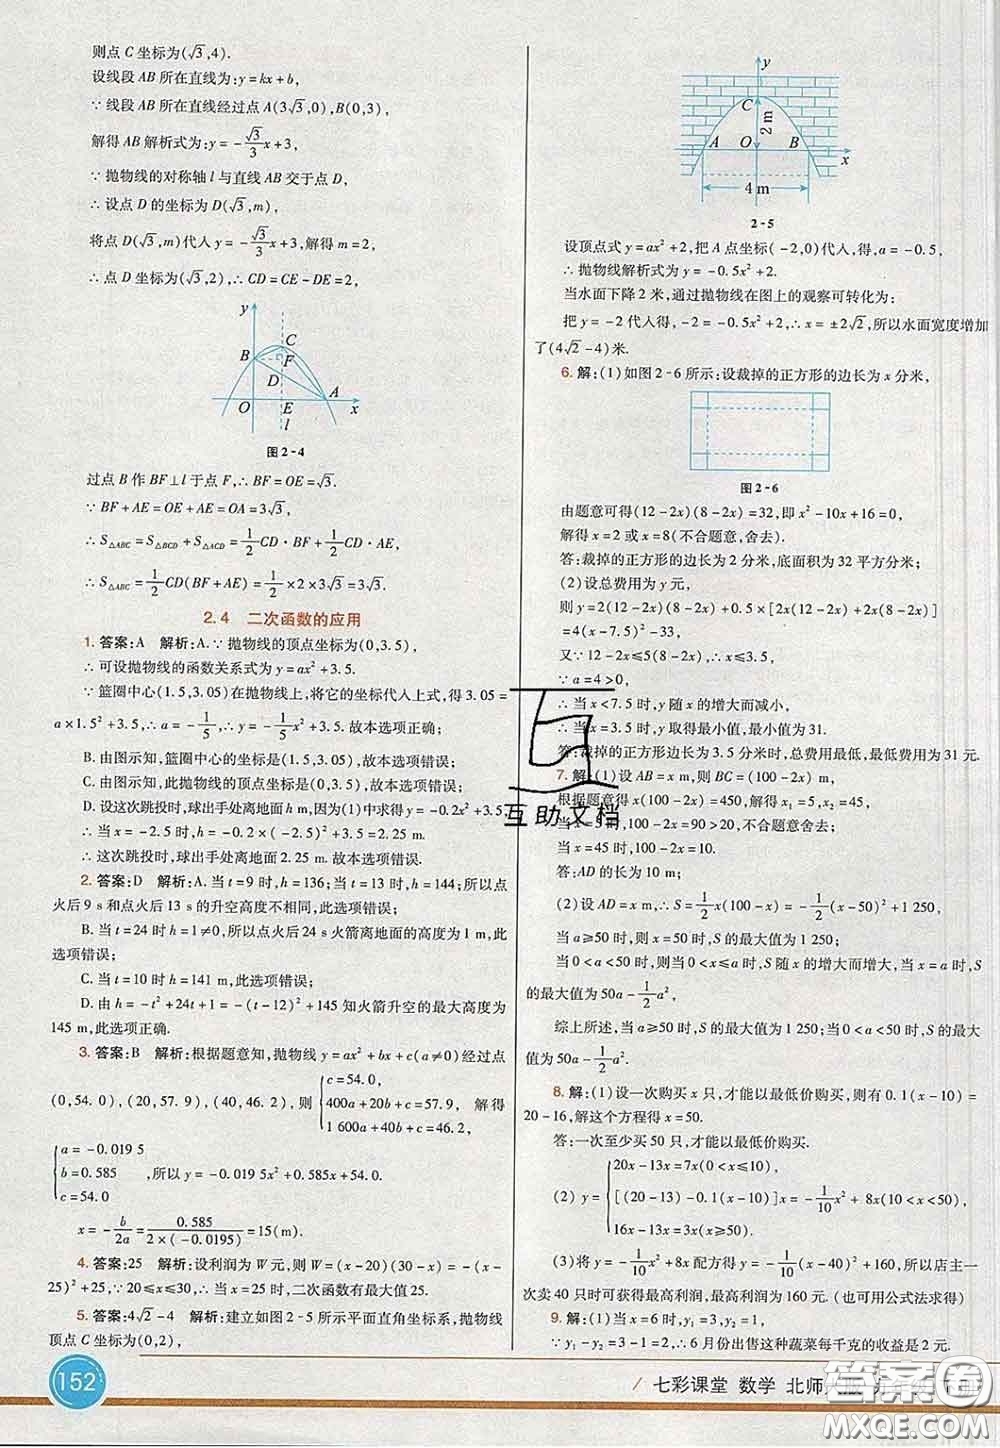 则点 C 坐标为(√3,4).
设线段 AB 所在直线为:y=kx+b,
∵线段 AB 所在直线经过点 A(3√3,0),B(0,3),
解得 AB 解析式为:y=-√3/3x+3,
∵抛物线的对称轴 l 与直线 AB 交于点 D,
∴设点 D 的坐标为 D(√3,m),
将点 D(√3,m)代人 y=-√3/3x+3,解得 m=2,
∴点 D 坐标为(√3,2),∴CD=CE-DE=2,
y
B
C
F
D
O
E
A
x
l
图 2-4
过点 B 作 BF⊥l 于点 F,∴BF=OE=√3.
∵BF+AE=OE+AE=OA=3√3,
∴S△ABC=S△BCD+S△ACD=1/2CD·BF+1/2CD·AE,
∴S△ABC=1/2CD(BF+AE)=1/2×2×3√3=3√3.
2.4 二次函数的应用
1.答案:A 解析:A.∵抛物线的顶点坐标为(0,3.5),
∴可设抛物线的函数关系式为 y=ax²+3.5.
∵篮圈中心(1.5,3.05)在抛物线上,将它的坐标代人上式,得 3.05=
a×1.5²+3.5,∴a=-1/5,∴y=-1/5x²+3.5.故本选项正确;
B.由图示知,篮圈中心的坐标是(1.5,3.05),故本选项错误;
C.由图示知,此抛物线的顶点坐标是(0,3.5),故本选项错误;
D.设这次跳投时,球出手处离地面 h m,因为(1)中求得 y=-0.2x²+3.5,
∴当 x=-2.5 时,h=-0.2×(-2.5)²+3.5=2.25 m.
∴这次跳投时,球出手处离地面 2.25 m.故本选项错误.
2.答案:D 解析:A.当 t=9 时,h=136;当 t=13 时,h=144;所以点
火后 9 s 和点火后 13 s 的升空高度不相同,此选项错误;
B.当 t=24 时 h=1≠0,所以点火后 24 s 火箭离地面的高度为 1 m,此
选项错误;
C.当 t=10 时 h=141 m,此选项错误;
D.由 h=-t²+24t+1=-(t-12)²+145 知火箭升空的最大高度为
145 m,此选项正确.
3.答案:B 解析:根据题意知,抛物线 y=ax²+bx+c(a≠0)经过点
(0,54.0),(20,57.9),(40,46.2),则{c=54.0, 400a+20b+c=57.9, 1 600a+40b+c=46.2, 解得
{a=-0.019 5 b=0.585 c=54.0 ,所以 y=-0.019 5x²+0.585x+54.0,
x=-b/2a=0.585/2×(-0.0195)=15(m).
4.答案:25 解析:设利润为 W 元,则 W=(x-20)(30-x)=-(x-
25)²+25,∵20≤x≤30,∴当 x=25 时,二次函数有最大值 25.
5.答案:4√2-4 解析:建立如图 2-5 所示平面直角坐标系,抛物线
顶点 C 坐标为(0,2),
y
C
2 m
A
O
B
x
4 m
2-5
设顶点式 y=ax²+2,把 A 点坐标(-2,0)代人,得,a=-0.5,
∴抛物线解析式为 y=-0.5x²+2.
当水面下降 2 米,通过抛物线在图上的观察可转化为:
把 y=-2 代人得,-2=-0.5x²+2,∴x=±2√2,所以水面宽度增加
了(4√2-4)米.
6.解:(1)如图 2-6 所示:设裁掉的正方形的边长为 x 分米,
图 2-6
由题意可得(12-2x)(8-2x)=32,即 x²-10x+16=0,
解得 x=2 或 x=8(不合题意,舍去).
答:裁掉的正方形的边长为 2 分米,底面积为 32 平方分米.
(2)设总费用为 y 元,
则 y=2(12-2x)(8-2x)+0.5×[2x(12-2x)+2x(8-2x)]
=4(x-7.5)²-33,
又∵12-2x≤5(8-2x),∴x≤3.5,
∵a=4>0,
∴当 x<7.5 时,y 随 x 的增大而减小,
∴当 x=3.5 时,y 取得最小值,最小值为 31.
答:裁掉的正方形边长为 3.5 分米时,总费用最低,最低费用为 31 元.
7.解:(1)设 AB=x m,则 BC=(100-2x)m,
根据题意得 x(100-2x)=450,解得 x₁=5,x₂=45,
当 x=5 时,100-2x=90>20,不合题意舍去;
当 x=45 时,100-2x=10,
答:AD 的长为 10 m;
(2)设 AD=x m,∴S=1/2x(100-x)=-1/2(x-50)²+1 250,
当 a≥50 时,则 x=50 时,S 的最大值为 1 250;
当 0<a<50 时,则当 0<x≤a 时,S 随 x 的增大而增大,当 x=a 时,S
的最大值为 50a-1/2a²,
综上所述,当 a≥50 时,S 的最大值为 1 250;当 0<a<50 时,S 的最大
值为 50a-1/2a².
8.解:(1)设一次购买 x 只,才能以最低价购买,则有 0.1(x-10)=
20-16,解这个方程得 x=50.
答:一次至少买 50 只,才能以最低价购买.
(2) y={20x-13x=7x(0<x≤10), [(20-13)-0.1(x-10)]x=-1/10x²+8x(10<x<50), 16x-13x=3x(x≥50)
(3)将 y=-1/10x²+8x 配方得 y=-1/10(x-40)²+160,所以店主一
次卖 40 只时可获得最高利润,最高利润为 160 元.(也可用公式法求得)
9.解:(1)当 x=6 时,y₁=3,y₂=1,
∵y₁-y₂=3-1=2,∴6 月份出售这种蔬菜每千克的收益是 2 元.
互助文档
152
七彩课堂 数学 北师
答案圈
MXQE.COM